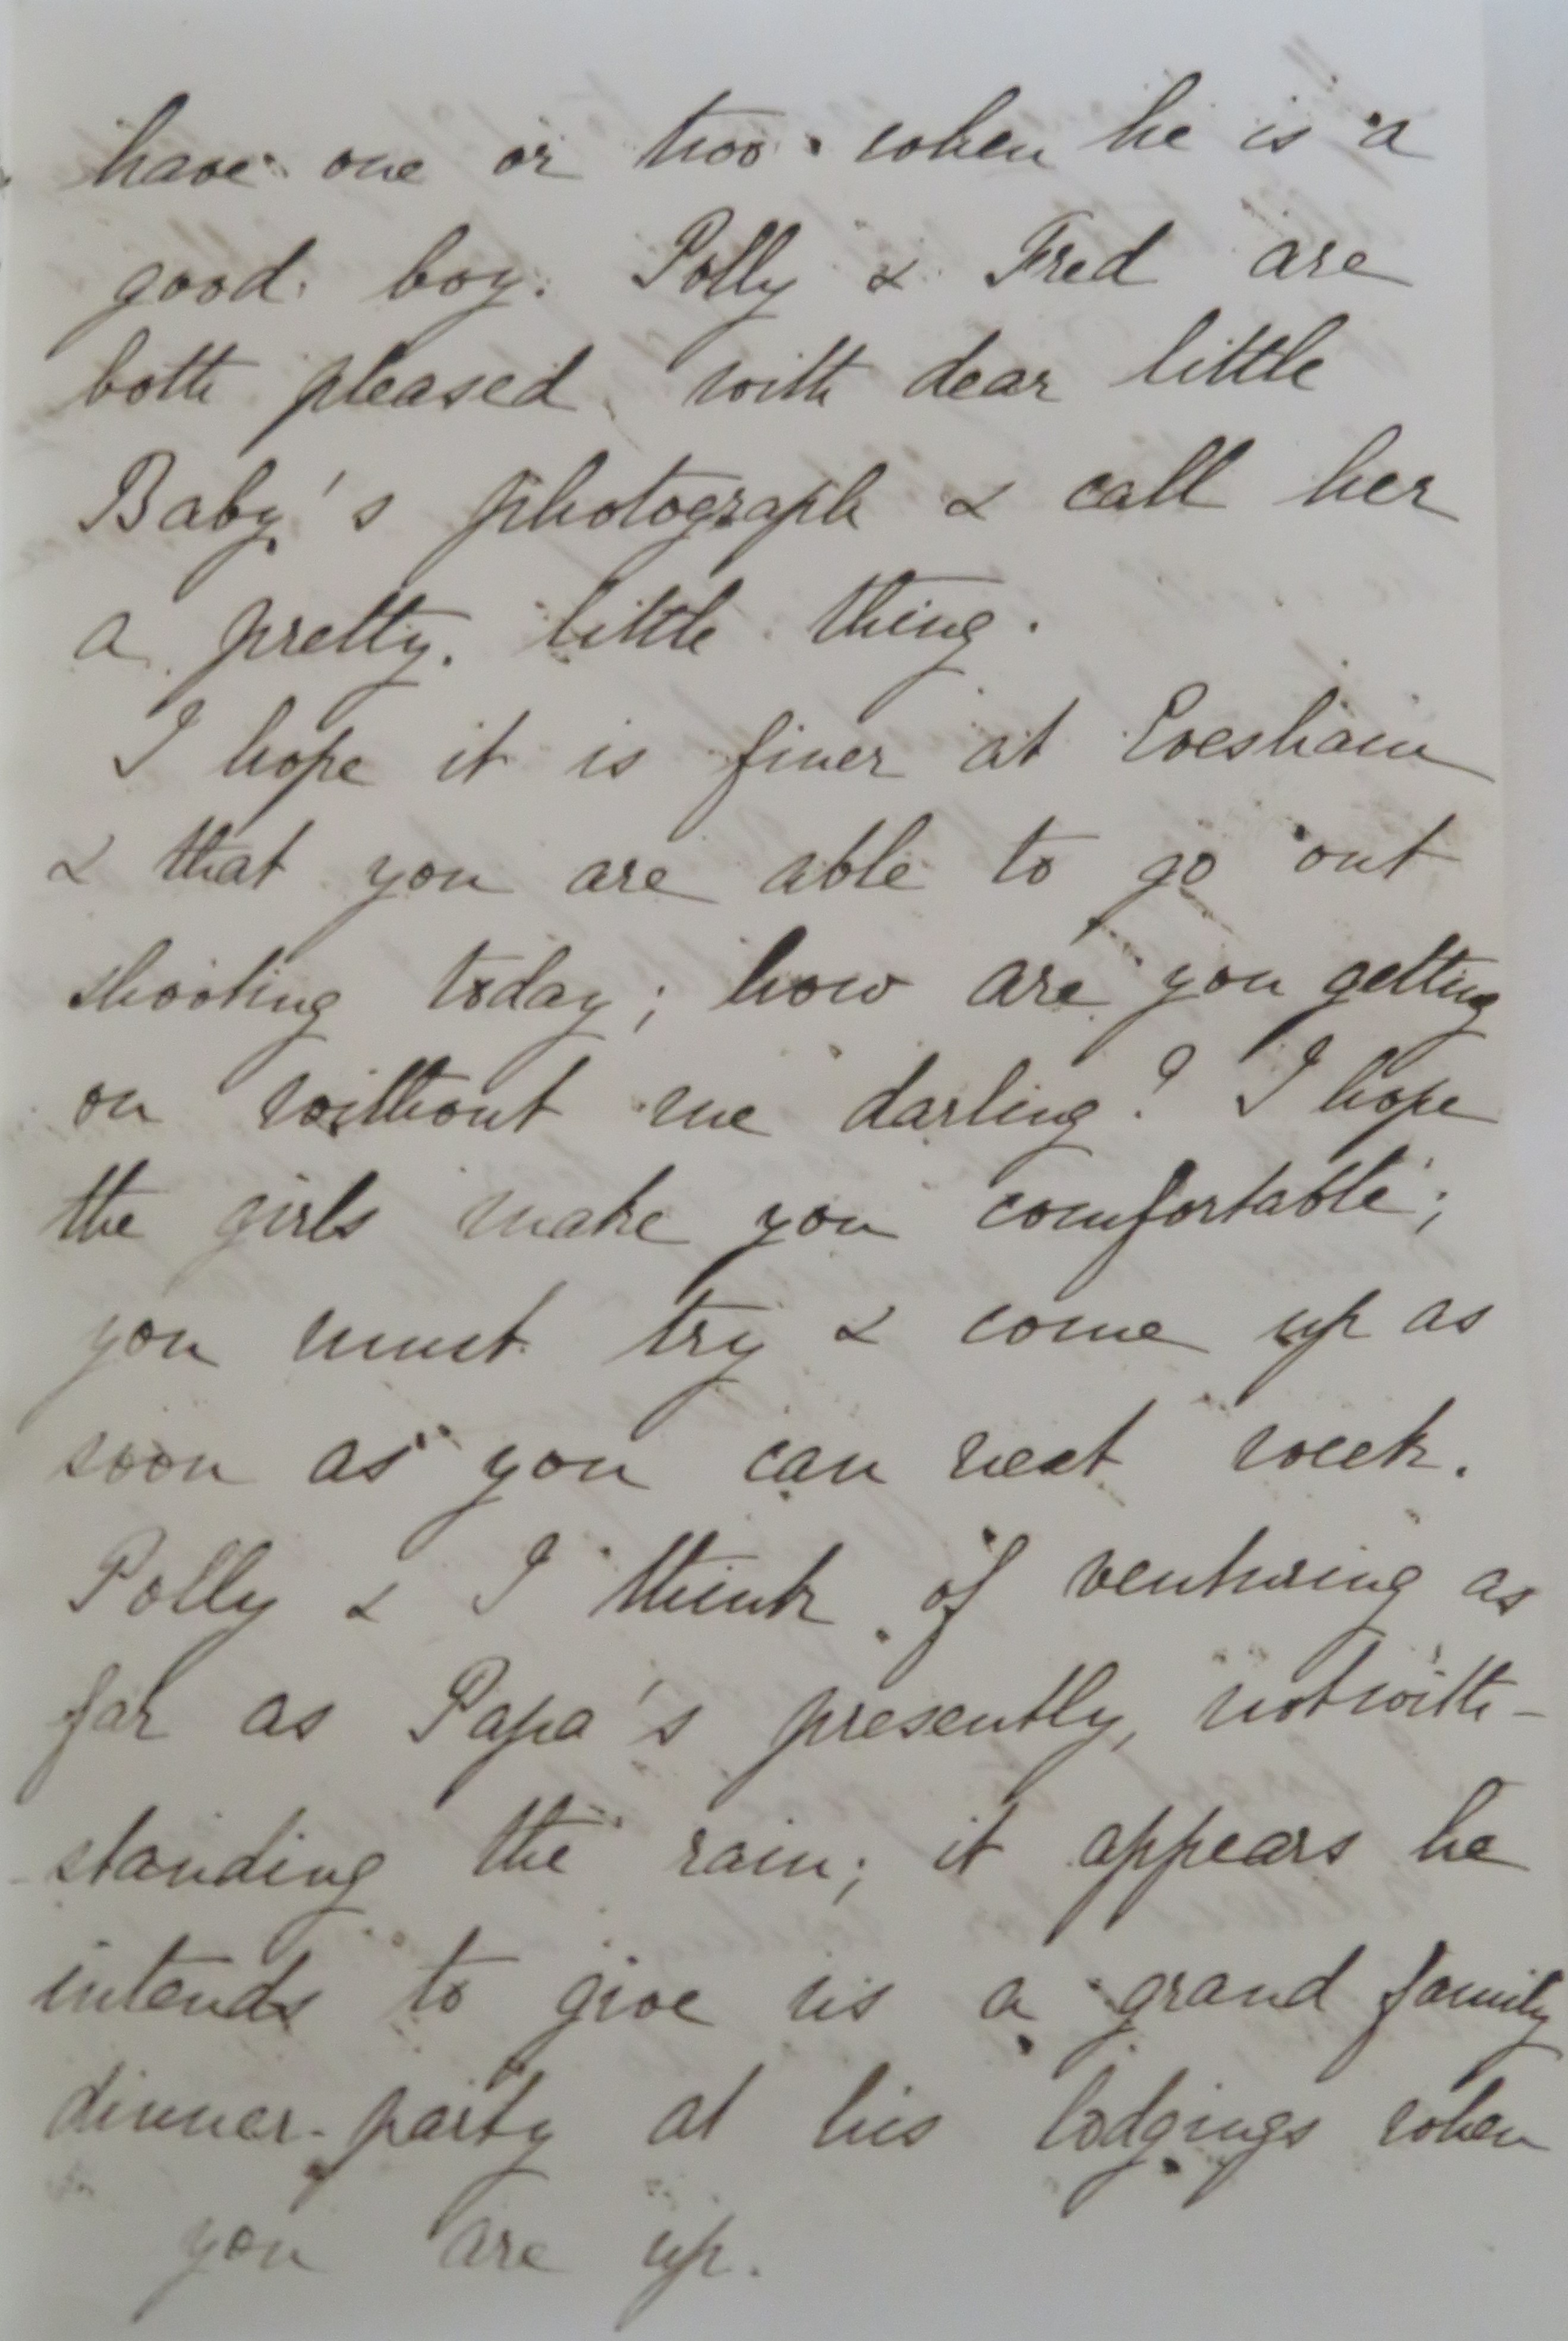 have one or two when he is a
good boy. Polly & Fred are
both pleased with dear little
Baby's photograph & call her
a pretty little thing.
I hope it is finer at Evesham
& that you are able to go out
shooting today; how are you getting
on without me darling? I hope
the girls make you comfortable;
you must try & come up as
soon as you can next week.
Polly & I think of venturing as
far as Papa's presently, notwith-
standing the rain; it appears he
intends to give us a grand family
dinner-party at his lodgings when
you are up.